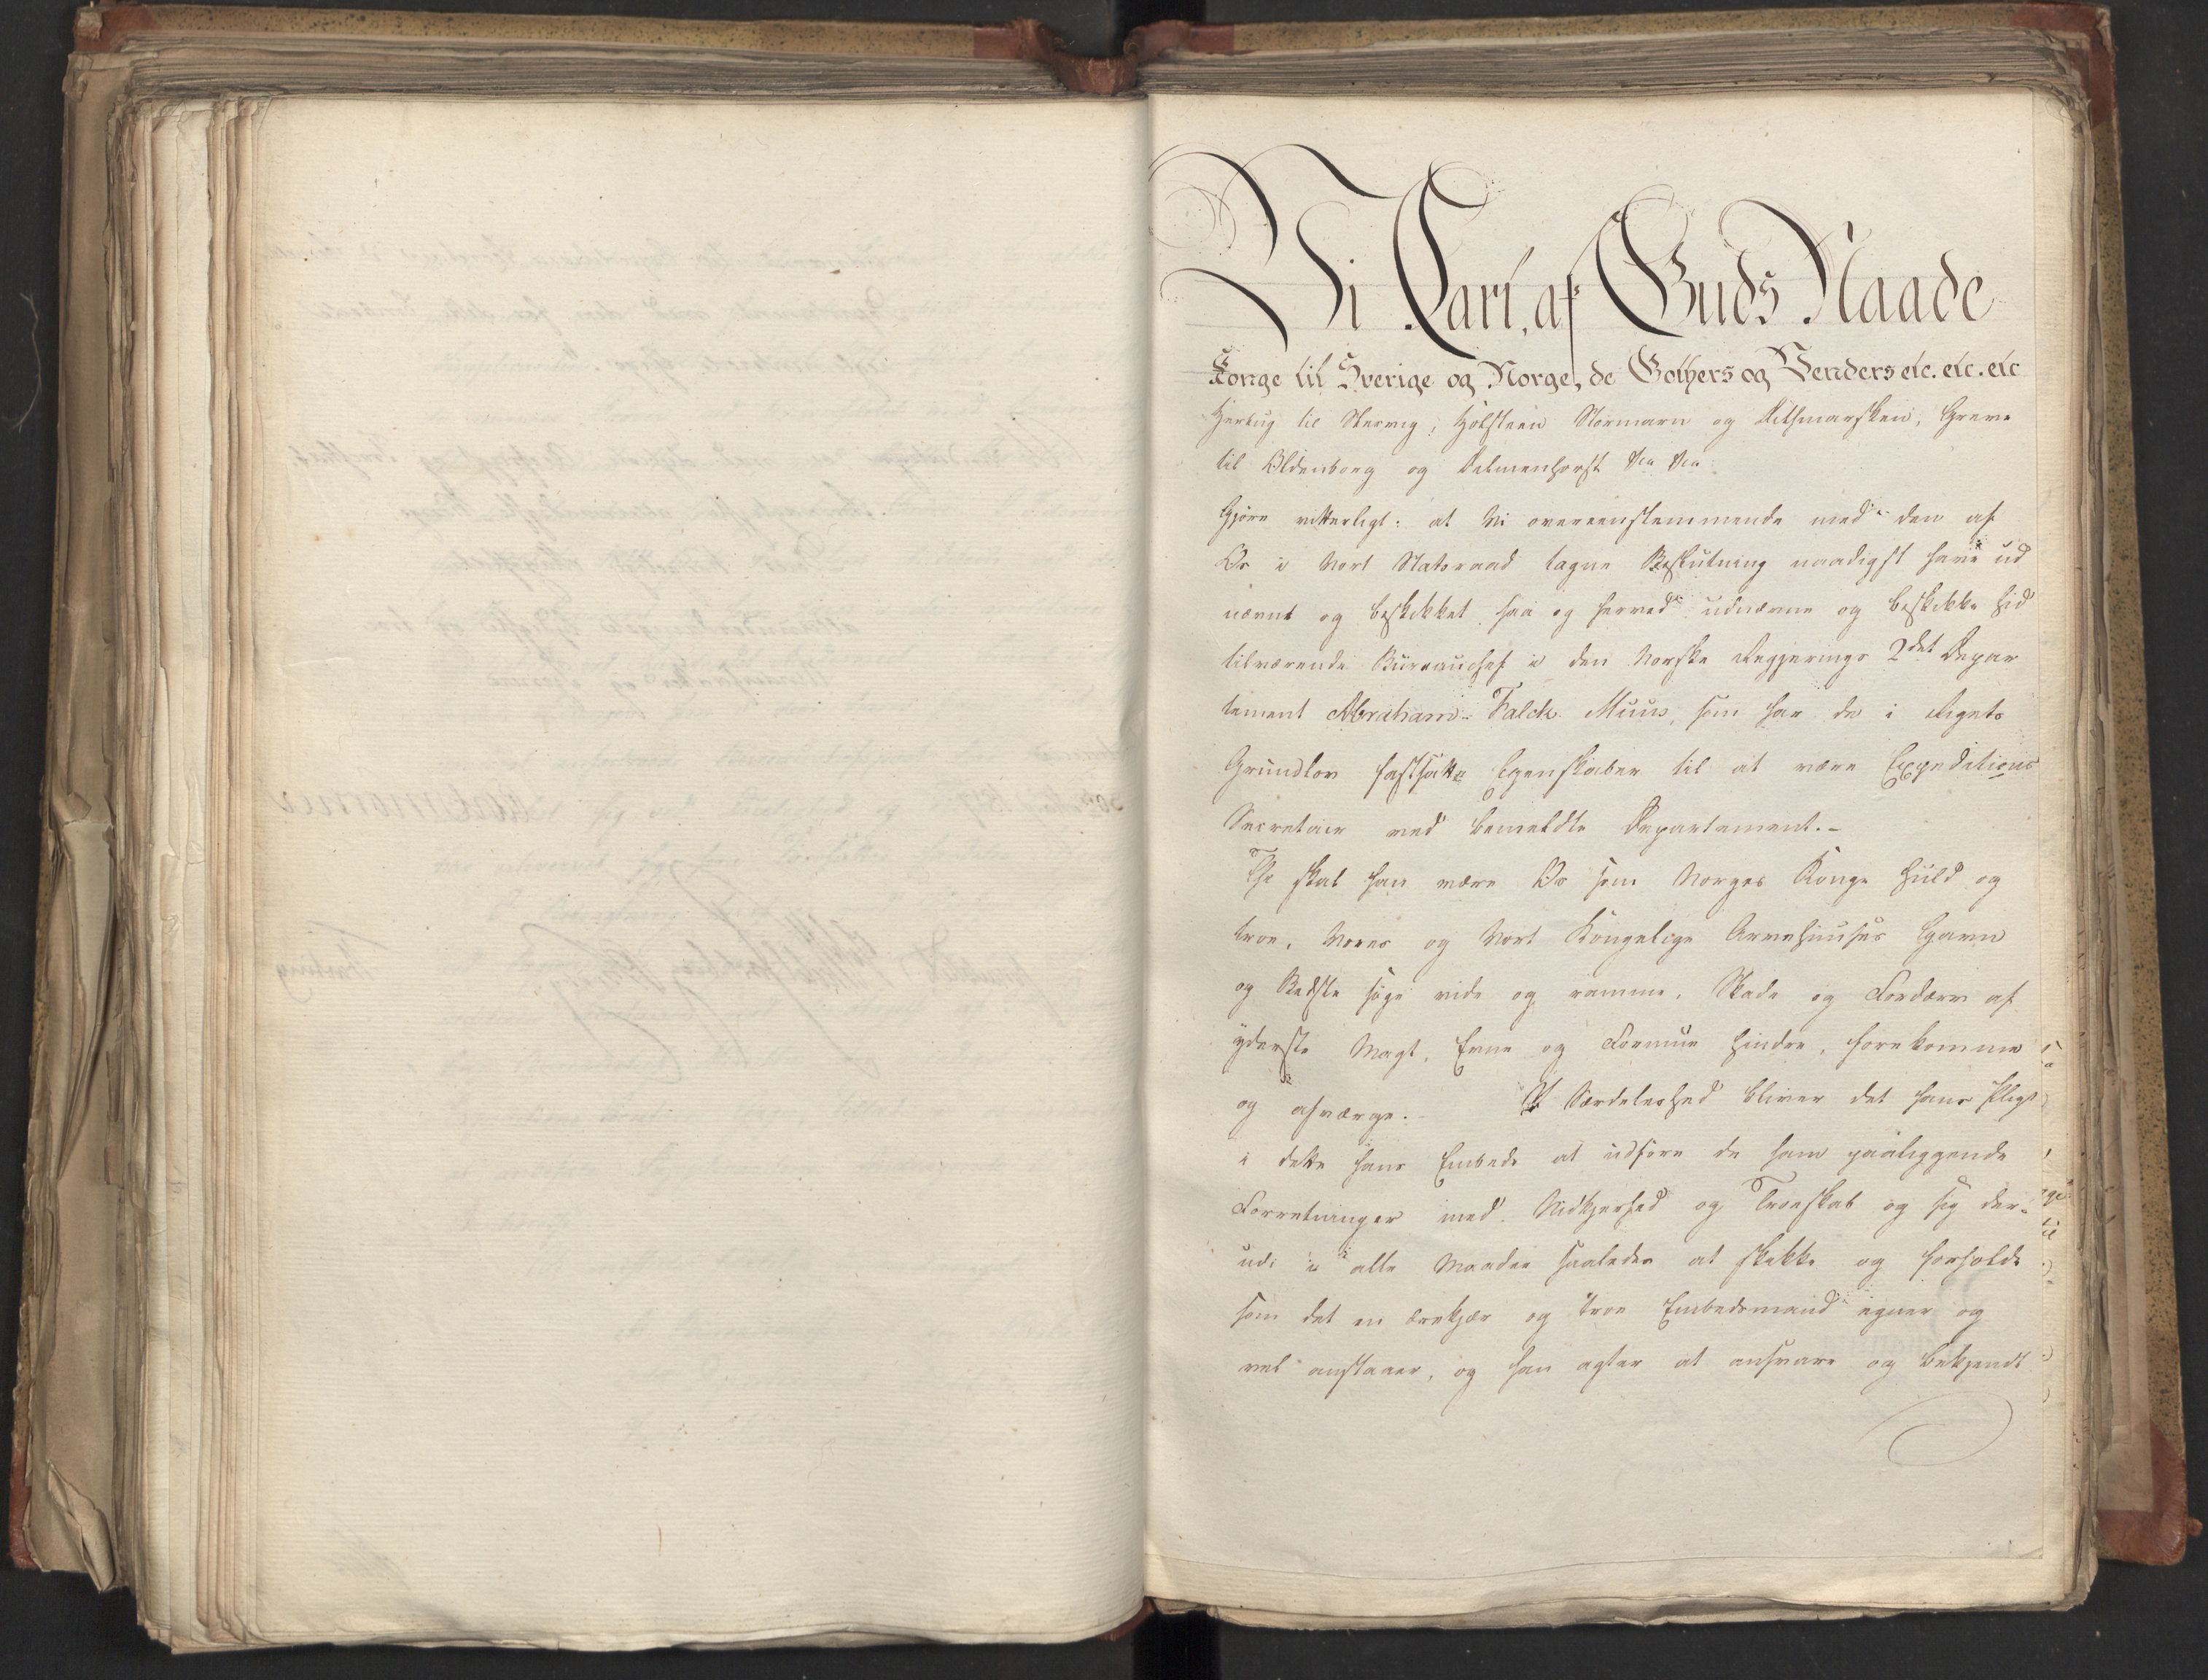 Vi Carl, af Guds Naade
Konge til Sverige og Norge, de Gothers og Venders etc. etc. etc
Hertug til Slesvig, Holsteen Stormarn og Ditsmarsken, Greve
til Oldenborg og Delmenhorst &ca &ca
Gjøre vitterligt: at Vi overeenstemmende med den af
Os i Vort Statsraad tagne Beslutning naadigst have ud
nævnt og beskikket saa og herved udnævne og beskikke hid
tilværende Bureauchef i den Norske Regjerings 2det Depar
tement Abraham Falck Muus, som har de i Rigets
Grundlov fastsatte Egenskaber til at være Expeditions
Secretair ved bemeldte Departement.-
Thi skal han være Os som Norges Konge huld og
troe, Vores og Vort Kongelige Arvehuuses Gavn
og Bedste søge vide og ramme, Skade og Fordærv af
yderste Magt, Evne og Formue hindre, forekomme
og afværge.- I Særdeleshed bliver det hans Pligt
i dette hans Embede at udføre de ham paaliggende
Forretninger med Nidkjerhed og Troeskab og sig der-
udi i alle Maader saaledes at skikke og forholde
som det en ærekjær og troe Embedsmand egner og
vel anstaaer, og han agter at ansvare og bekjendt